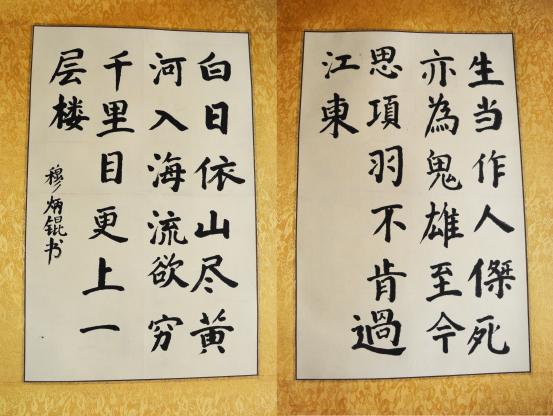 白日依山尽黃
河入海流欲穷
千里目更上一
层楼
穆炳锟书
生当作人傑死
亦為鬼雄至今
思項羽不肯過
江東